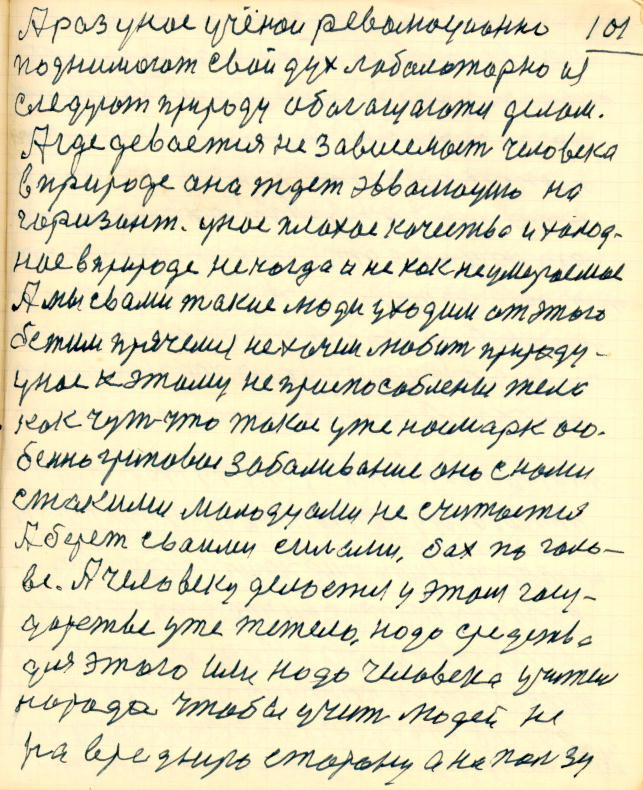 А раз у нас учёнои революционно 101
поднимают свой дух лаболоторно и
следуют природу обогащаются делом.
А где девается не зависемост человека
в природе она ждет эвволюцию на
горизонт. у нас плохое качество и холод-
ное в природе некогда и не как неумераемое
А мы с вами такие люди уходим от этого
бежим прячемся не хочем любит природу-
у нас к этому не приспособленое тело
как чут-что такое уже носмарк осо-
бенно гриповое забаливание оно с нами
с такими молодцами не считается
А берет своими силами, бах по голо-
ве. А человеку делается у этом госу-
дарстве уже тежело, надо средство
для этого или надо человека учителя
народа чтобы учит людей не
на вреднуро сторону а на ползу